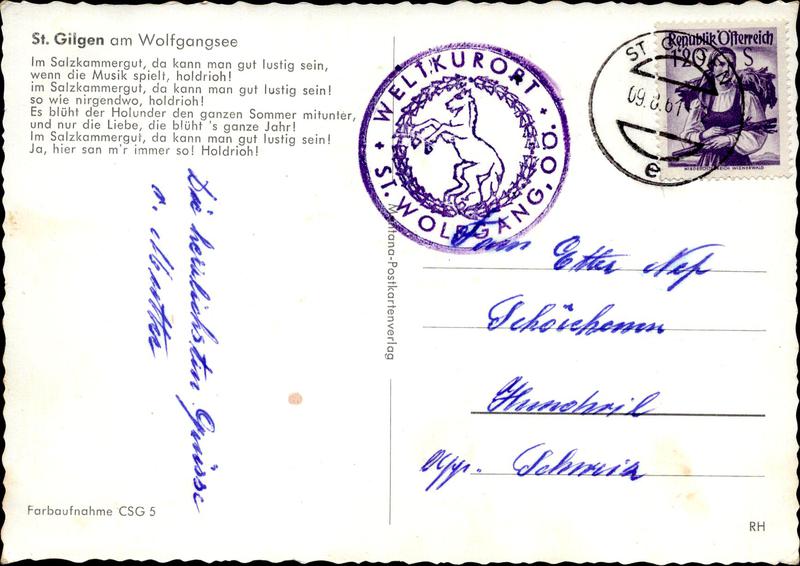 St. Gilgen am Wolfgangsee
Im Salzkammergut, da kann man gut lustig sein,
wenn die Musik spielt, holdrioh!
im Salzkammergut, da kann man gut lustig sein!
so wie nirgendwo, holdrioh!
Es blüht der Holunder den ganzen Sommer mitunter,
und nur die Liebe, die blüht 's ganze Jahr!
Im Salzkammergut, da kann man gut lustig sein!
Ja, hier san m'r immer so! Holdrioh!
Die herzlichsten Grüsse
v. Mutter
Farbaufnahme CSG 5
+ WELTKURORT +
ST. WOLFGANG, O.Ö.
-Postkartenverlag
ST. GILGEN
09.8.61
e
Republik Österreich
1.20 S
NIEDERÖSTERREICH WIENERWALD
Fam
Etter Nef
Hundwil
App. Schweiz
RH